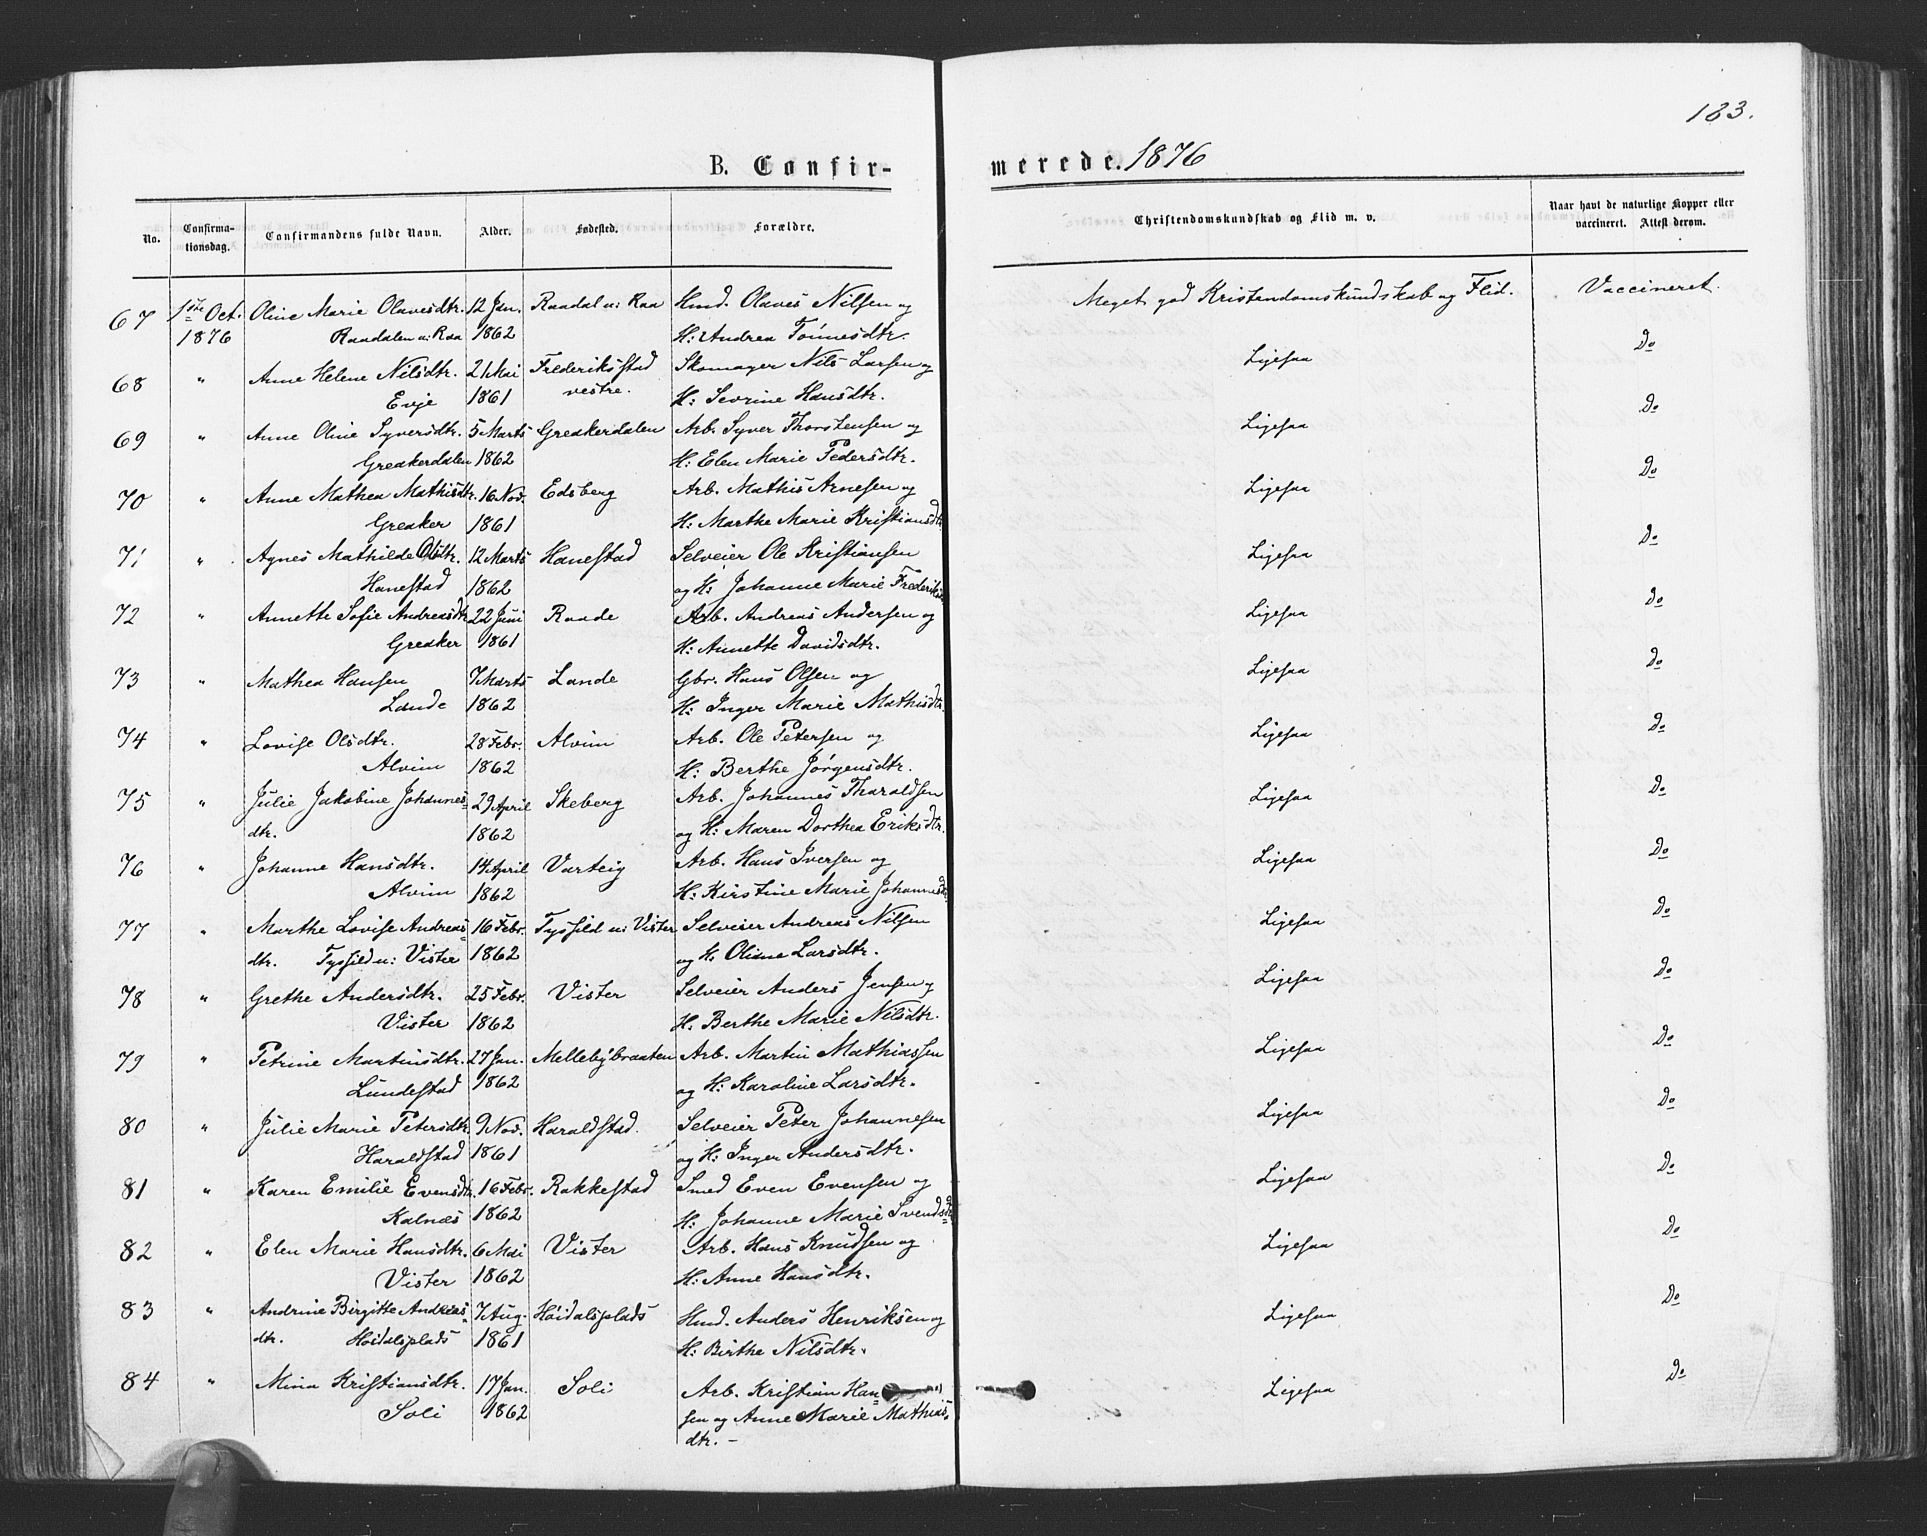 183.
B. Confir-
merede. 1876
No.
Confirma-
tionsdag.
Confirmandens fulde Navn.
Alder.
Fødested.
Forældre.
Christendomskundskab og Flid m. v.
Naar havt de naturlige Kopper eller
vaccineret. Attest derom.
67 1ste Oct. Oline Marie Olavesdtr. 12 Jan. Raadal u: Raa Hmd. Olaves Nilsen og Meget god Kristendomskundskab og Flid. Vaccineret.
1876 Raadalen u: Raa 1862 H: Andrea Tønnesdtr.
68 " Anne Helene Nilsdtr. 21 Mai Frederiksstad Skomager Nils Larsen og Ligesaa Do
Evje 1861 vestre. H: Sevrine Hansdtr.
69 " Anne Oline Syversdtr. 5 Marts Greakerdalen Arb. Syver Thorstensen og Ligesaa Do
Greakerdalen 1862 H: Elen Marie Pedersdtr.
70 " Anne Mathea Mathisdtr. 16 Nov. Edsberg Arb. Mathis Arnesen og Ligesaa Do
Greaker 1861 H: Marthe Marie Kristiansdtr
71 " Agnes Mathilde Olsdtr. 12 Marts Hanestad Selveier Ole Kristiansen Ligesaa Do
Hanestad 1862 og H: Johanne Marie Frederiks
72 " Annette Sofie Andreasdtr 22 Juni Raade Arb. Andreas Andersen og Ligesaa Do
Greaker 1861 H: Annette Davidsdtr.
73 " Mathea Hansen 7 Marts Lande Gbr. Hans Olsen og Ligesaa Do
Lande 1862 H: Inger Marie Mathisdtr.
74 " Lovise Olsdtr. 28 Febr. Alvim Arb. Ole Petersen og Ligesaa Do
Alvim 1862 H: Berthe Jørgensdtr.
75 " Julie Jakobine Johannes= 29 April Skeberg Arb. Johannes Tharaldsen Ligesaa Do
dtr. 1862 og H: Maren Dorthea Eriksdtr.
76 " Johanne Hansdtr. 14 April Varteig Arb. Hans Iversen og Ligesaa Do
Alvim 1862 H: Kirstine Marie Johannesdtr
77 " Marthe Lovise Andreas= 16 Febr. Tyssild u: Vister Selveier Andreas Nilsen Ligesaa Do
dtr. Tyssild u: Vister 1862 og H. Oliane Larsdtr.
78 " Grethe Andersdtr. 25 Febr. Vister Selveier Anders Jensen og Ligesaa Do
Vister 1862 H: Berthe Marie Nilsdtr.
79 " Petrine Martinsdtr. 27 Jan. Mellebybraaten Arb. Martin Mathiassen Ligesaa Do
Lundestad 1862 og H: Karoline Larsdtr.
80 " Julie Marie Petersdtr. 9 Nov. Haraldstad. Selveier Peter Johannesen Ligesaa Do
Haraldstad 1861 og H: Inger Andersdtr.
81 " Karen Emilie Evensdtr. 16 Febr. Rakkestad Smed Even Evensen og Ligesaa Do
Kalnæs 1862 H: Johanne Marie Svendsdtr
82 " Elen Marie Hansdtr. 6 Mai Vister Arb. Hans Knudsen og Ligesaa Do
Vister 1862 H: Anne Hansdtr.
83 " Andrine Birgitte Andreas= 7 Aug. Høidalsplads Hmd. Anders Henriksen og Ligesaa Do
dtr. Høidalsplads 1861 H: Birthe Nilsdtr.
84 " Mina Kristiansdtr. 17 Jan. Soli Arb. Kristian Han= Ligesaa Do
Soli 1862 sen og Anne Marie Mathias=
dtr. -